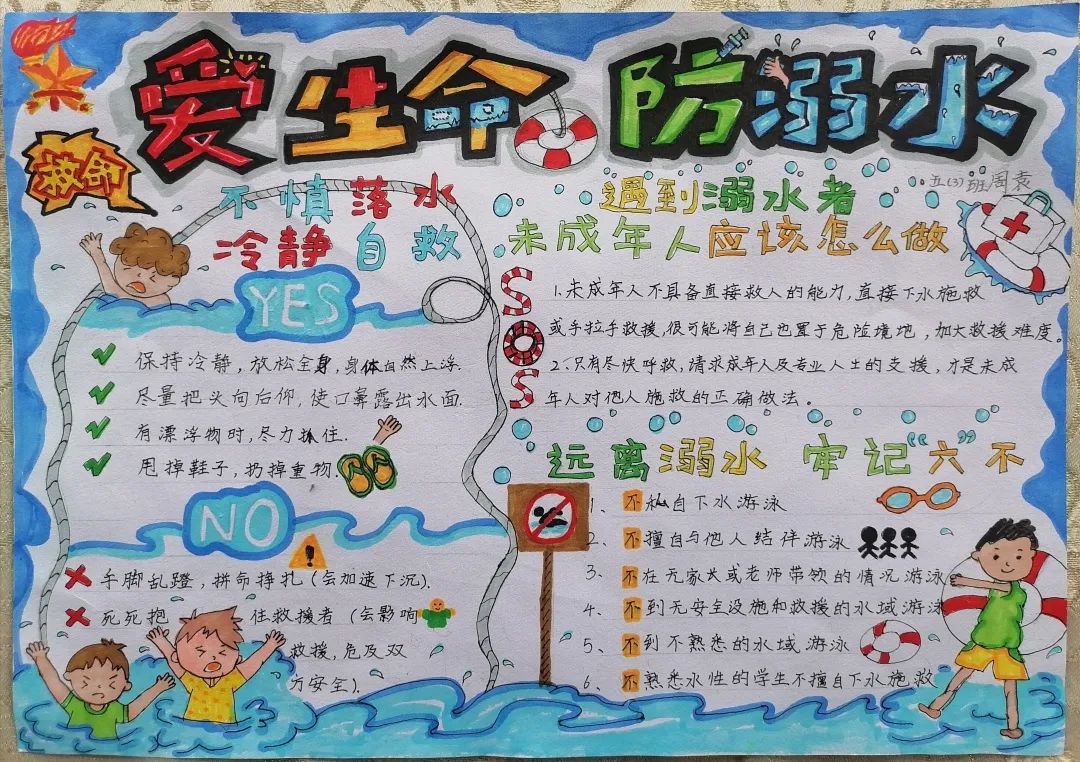 爱生命 防溺水
救命
五(3)班周袁
不慎落水
冷静自救
YES
保持冷静,放松全身,身体自然上浮.
尽量把头向后仰,使口鼻露出水面.
有漂浮物时,尽力抓住.
甩掉鞋子,扔掉重物.
NO
手脚乱蹬,拼命挣扎(会加速下沉).
死死抱住救援者(会影响
救援,危及双
方安全).
遇到溺水者
未成年人应该怎么做
SOS
1.未成年人不具备直接救人的能力,直接下水施救
或手拉手救援,很可能将自己也置于危险境地,加大救援难度。
2.只有尽快呼救,请求成年人及专业人生的支援,才是未成
年人对他人施救的正确做法。
远离溺水 牢记“六”不
1、不私自下水游泳
2、不擅自与他人结伴游泳
3、不在无家长或老师带领的情况游泳
4、不到无安全设施和救援的水域游泳
5、不到不熟悉的水域游泳
6、不熟悉水性的学生不擅自下水施救